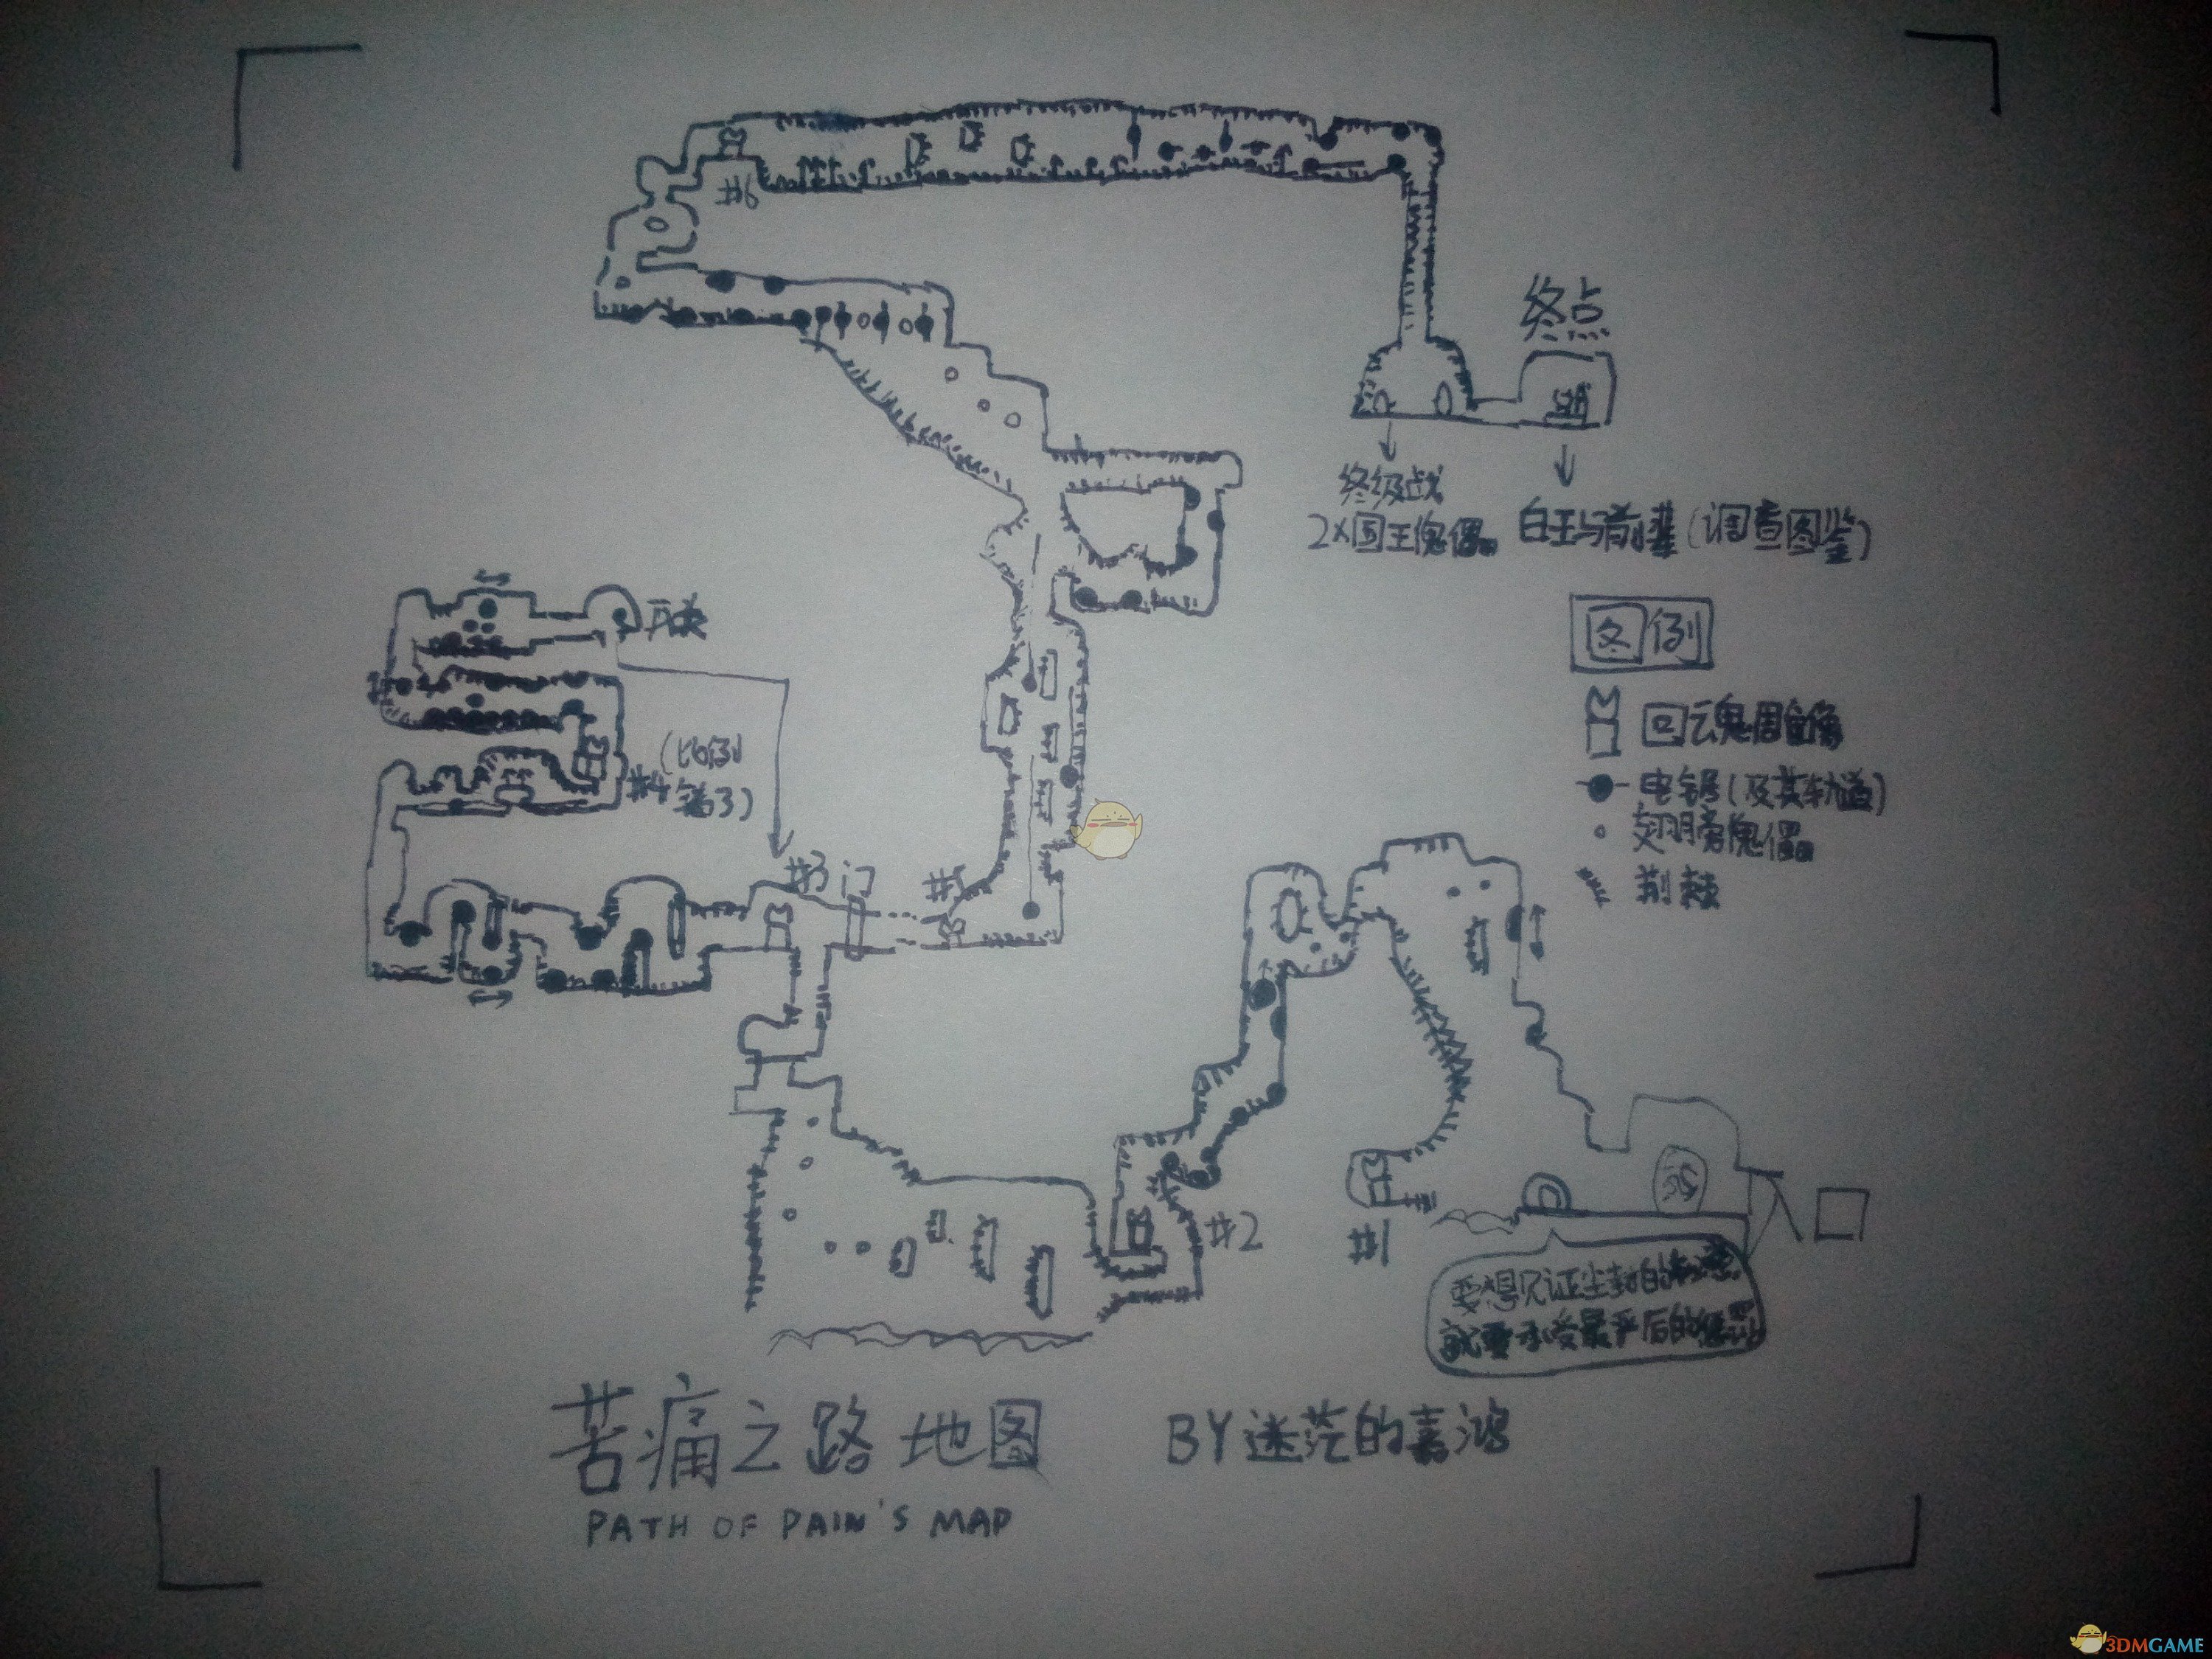 #6
终点
终级战
2X国王傀儡。
白王与前辈(调查图鉴)
图例
回
电锯(及其轨道)
翅膀傀儡。
荆棘
开关
(比例
错了)
#4
#3
门
#5
#2
#1
入口
要想见证尘封的
就要承受最严后的惩罚
苦痛之路 地图
BY 迷茫的嘉鸿
PATH OF PAIN'S MAP
3DMGAME